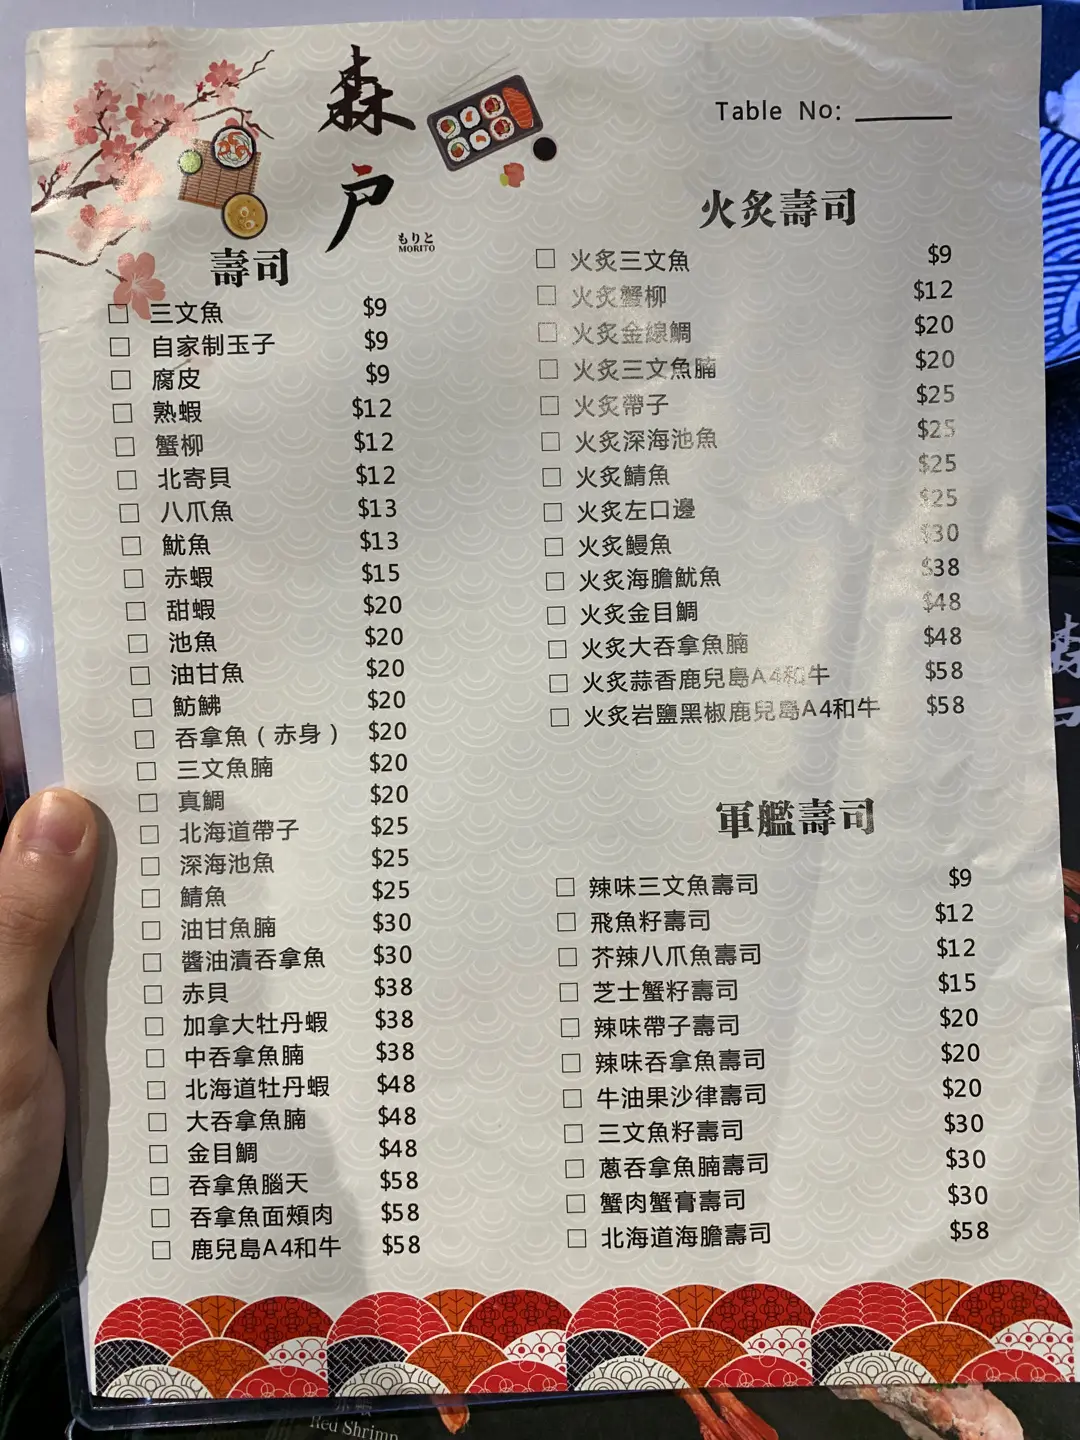 森
戶
もりと
MORITO
Table No:
壽司
三文魚 $9
自家制玉子 $9
腐皮 $9
熟蝦 $12
蟹柳 $12
北寄貝 $12
八爪魚 $13
魷魚 $13
赤蝦 $15
甜蝦 $20
池魚 $20
油甘魚 $20
魴鮄 $20
吞拿魚（赤身） $20
三文魚腩 $20
真鯛 $20
北海道帶子 $25
深海池魚 $25
鯖魚 $25
油甘魚腩 $30
醬油漬吞拿魚 $30
赤貝 $38
加拿大牡丹蝦 $38
中吞拿魚腩 $38
北海道牡丹蝦 $48
大吞拿魚腩 $48
金目鯛 $48
吞拿魚腦天 $58
吞拿魚面頰肉 $58
鹿兒島A4和牛 $58
火炙壽司
火炙三文魚 $9
火炙蟹柳 $12
火炙金線鯛 $20
火炙三文魚腩 $20
火炙帶子 $25
火炙深海池魚 $25
火炙鯖魚 $25
火炙左口邊 $25
火炙鰻魚 $30
火炙海膽魷魚 $38
火炙金目鯛 $48
火炙大吞拿魚腩 $48
火炙蒜香鹿兒島A4和牛 $58
火炙岩鹽黑椒鹿兒島A4和牛 $58
軍艦壽司
辣味三文魚壽司 $9
飛魚籽壽司 $12
芥辣八爪魚壽司 $12
芝士蟹籽壽司 $15
辣味帶子壽司 $20
辣味吞拿魚壽司 $20
牛油果沙律壽司 $20
三文魚籽壽司 $30
蔥吞拿魚腩壽司 $30
蟹肉蟹膏壽司 $30
北海道海膽壽司 $58
Red Shrimp